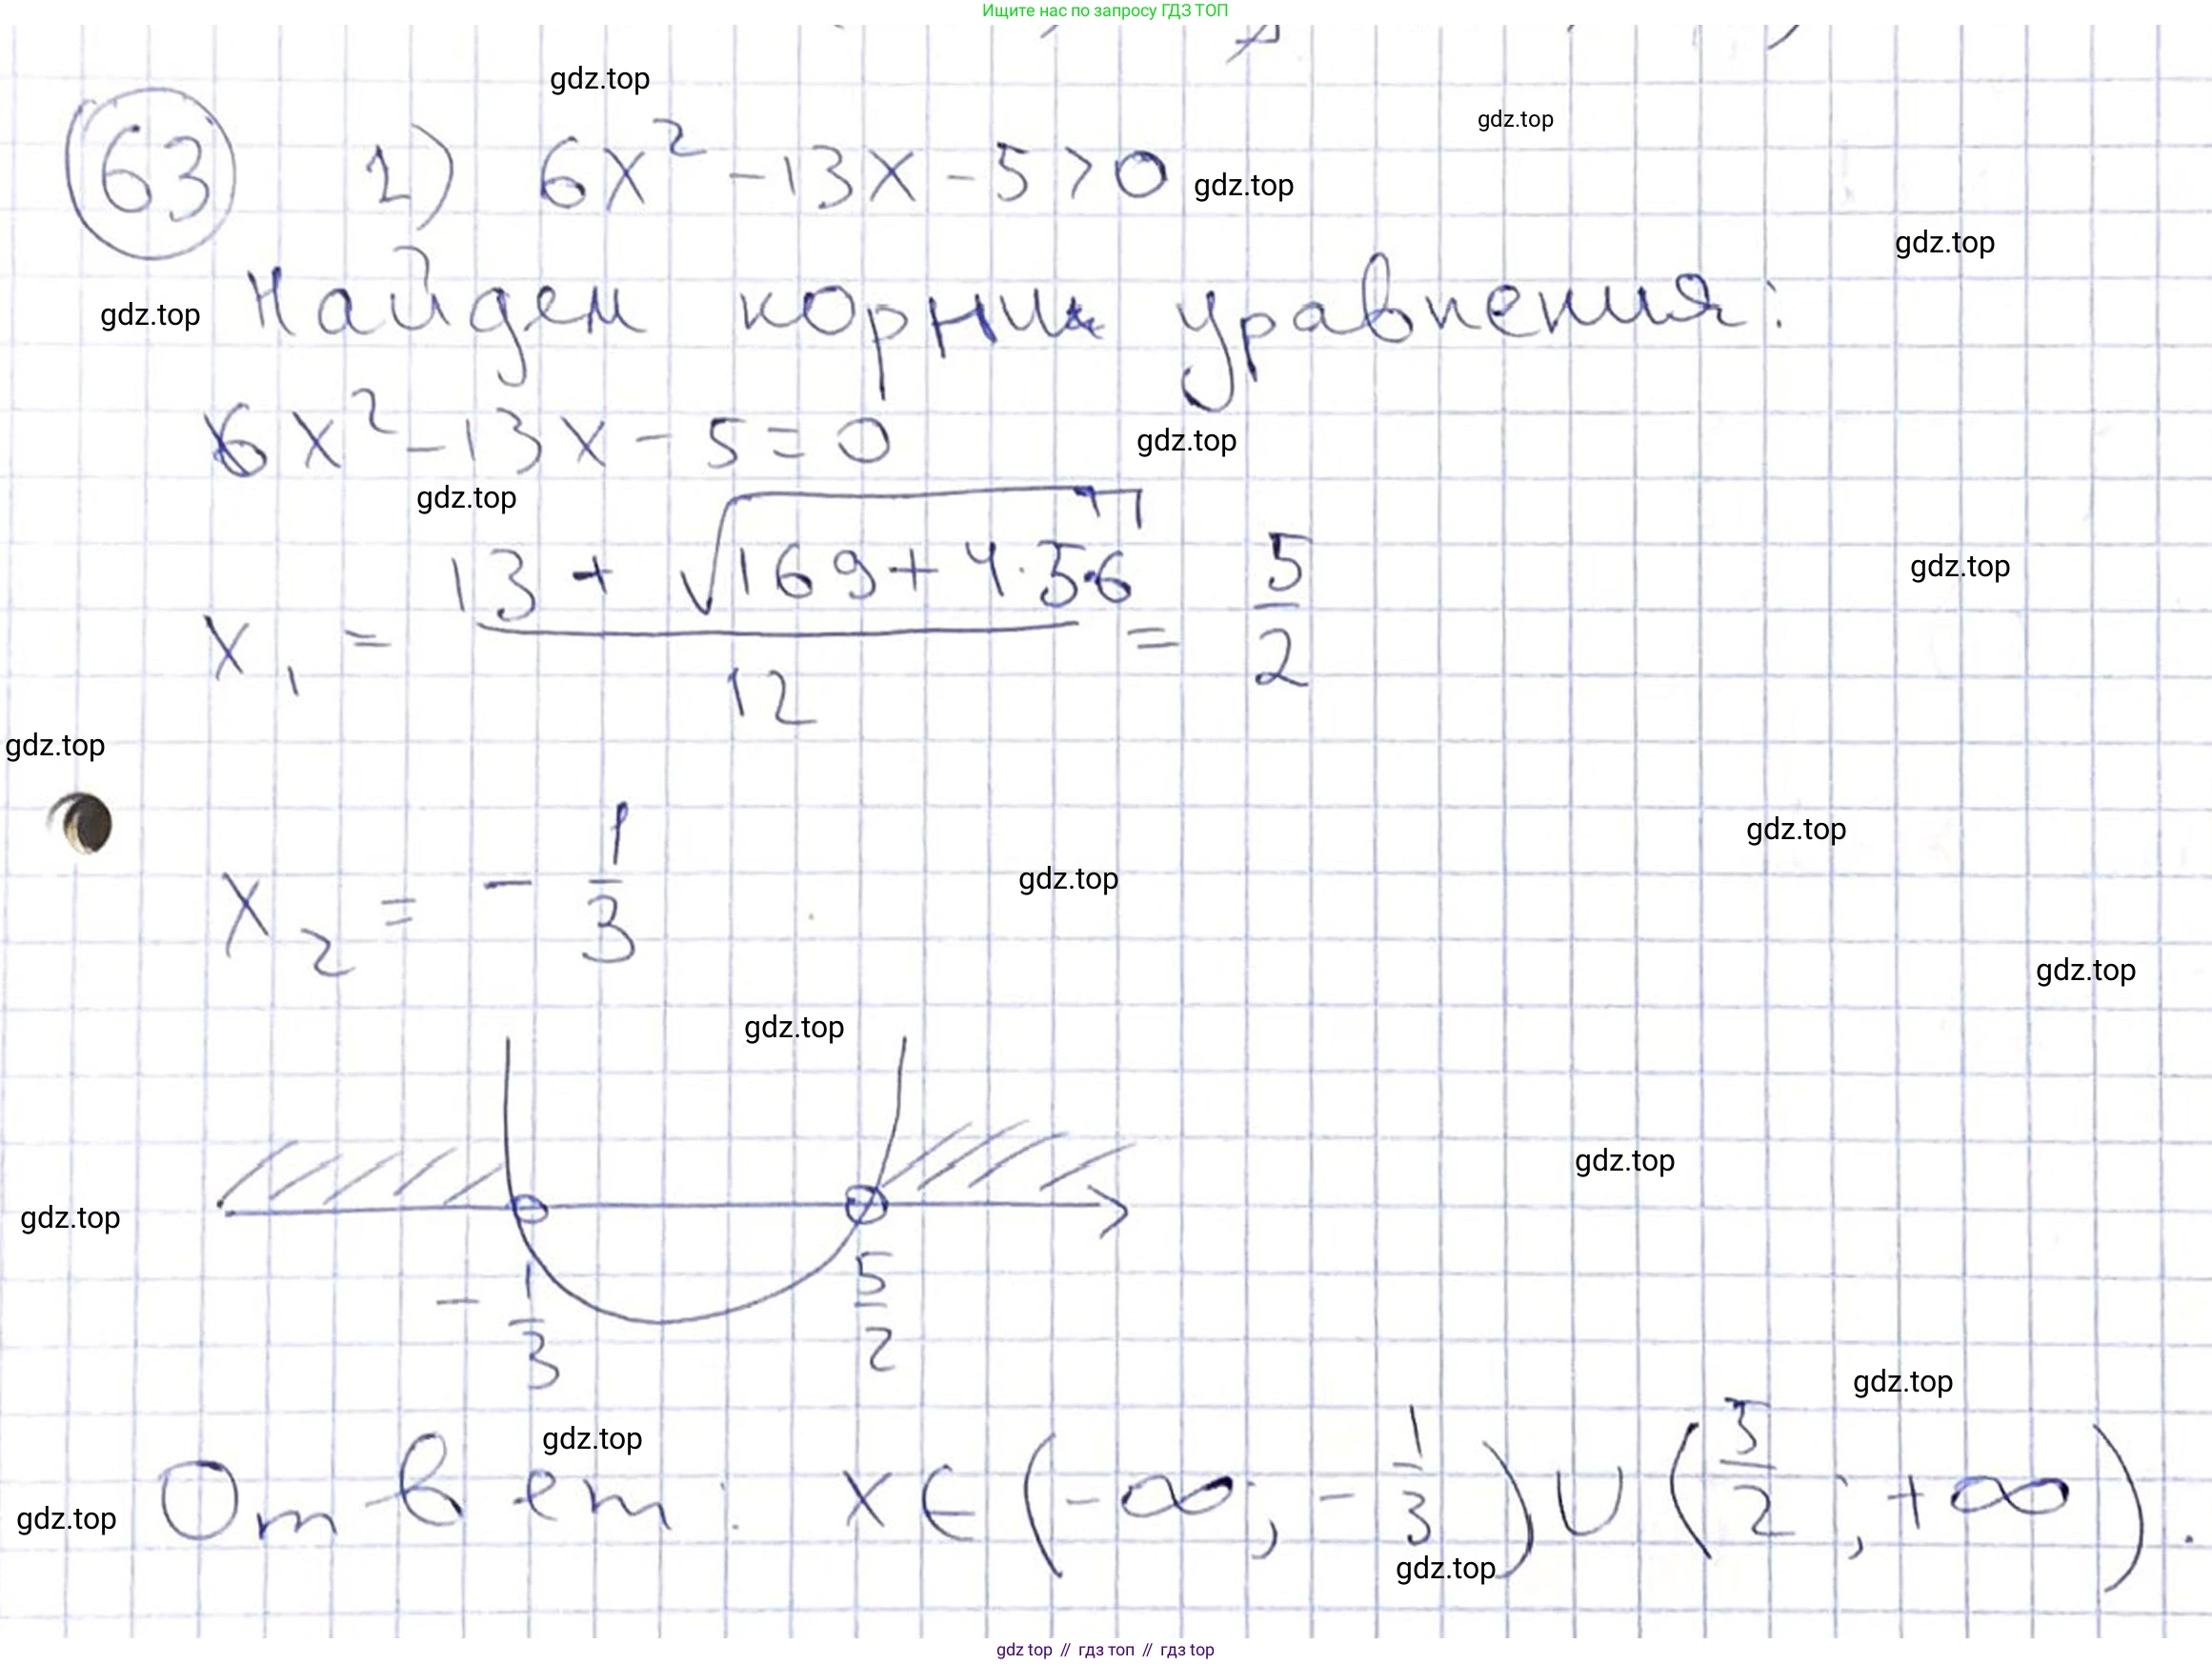 Ищите нас по запросу ГДЗ ТОП
gdz.top
gdz.top
63 1) 6x² - 13x - 5 > 0 gdz.top
gdz.top
gdz.top Найдем корни уравнения:
6x² - 13x - 5 = 0 gdz.top
gdz.top
gdz.top
x₁ = (13 + √(169 + 4·5·6))/12 = 5/2
gdz.top
gdz.top
x₂ = - 1/3 gdz.top
gdz.top
gdz.top
gdz.top
gdz.top
- 1/3 5/2
gdz.top
gdz.top
gdz.top Ответ: x ∈ (-∞; - 1/3) ∪ (5/2; +∞).
gdz.top
gdz top // гдз топ // гдз top